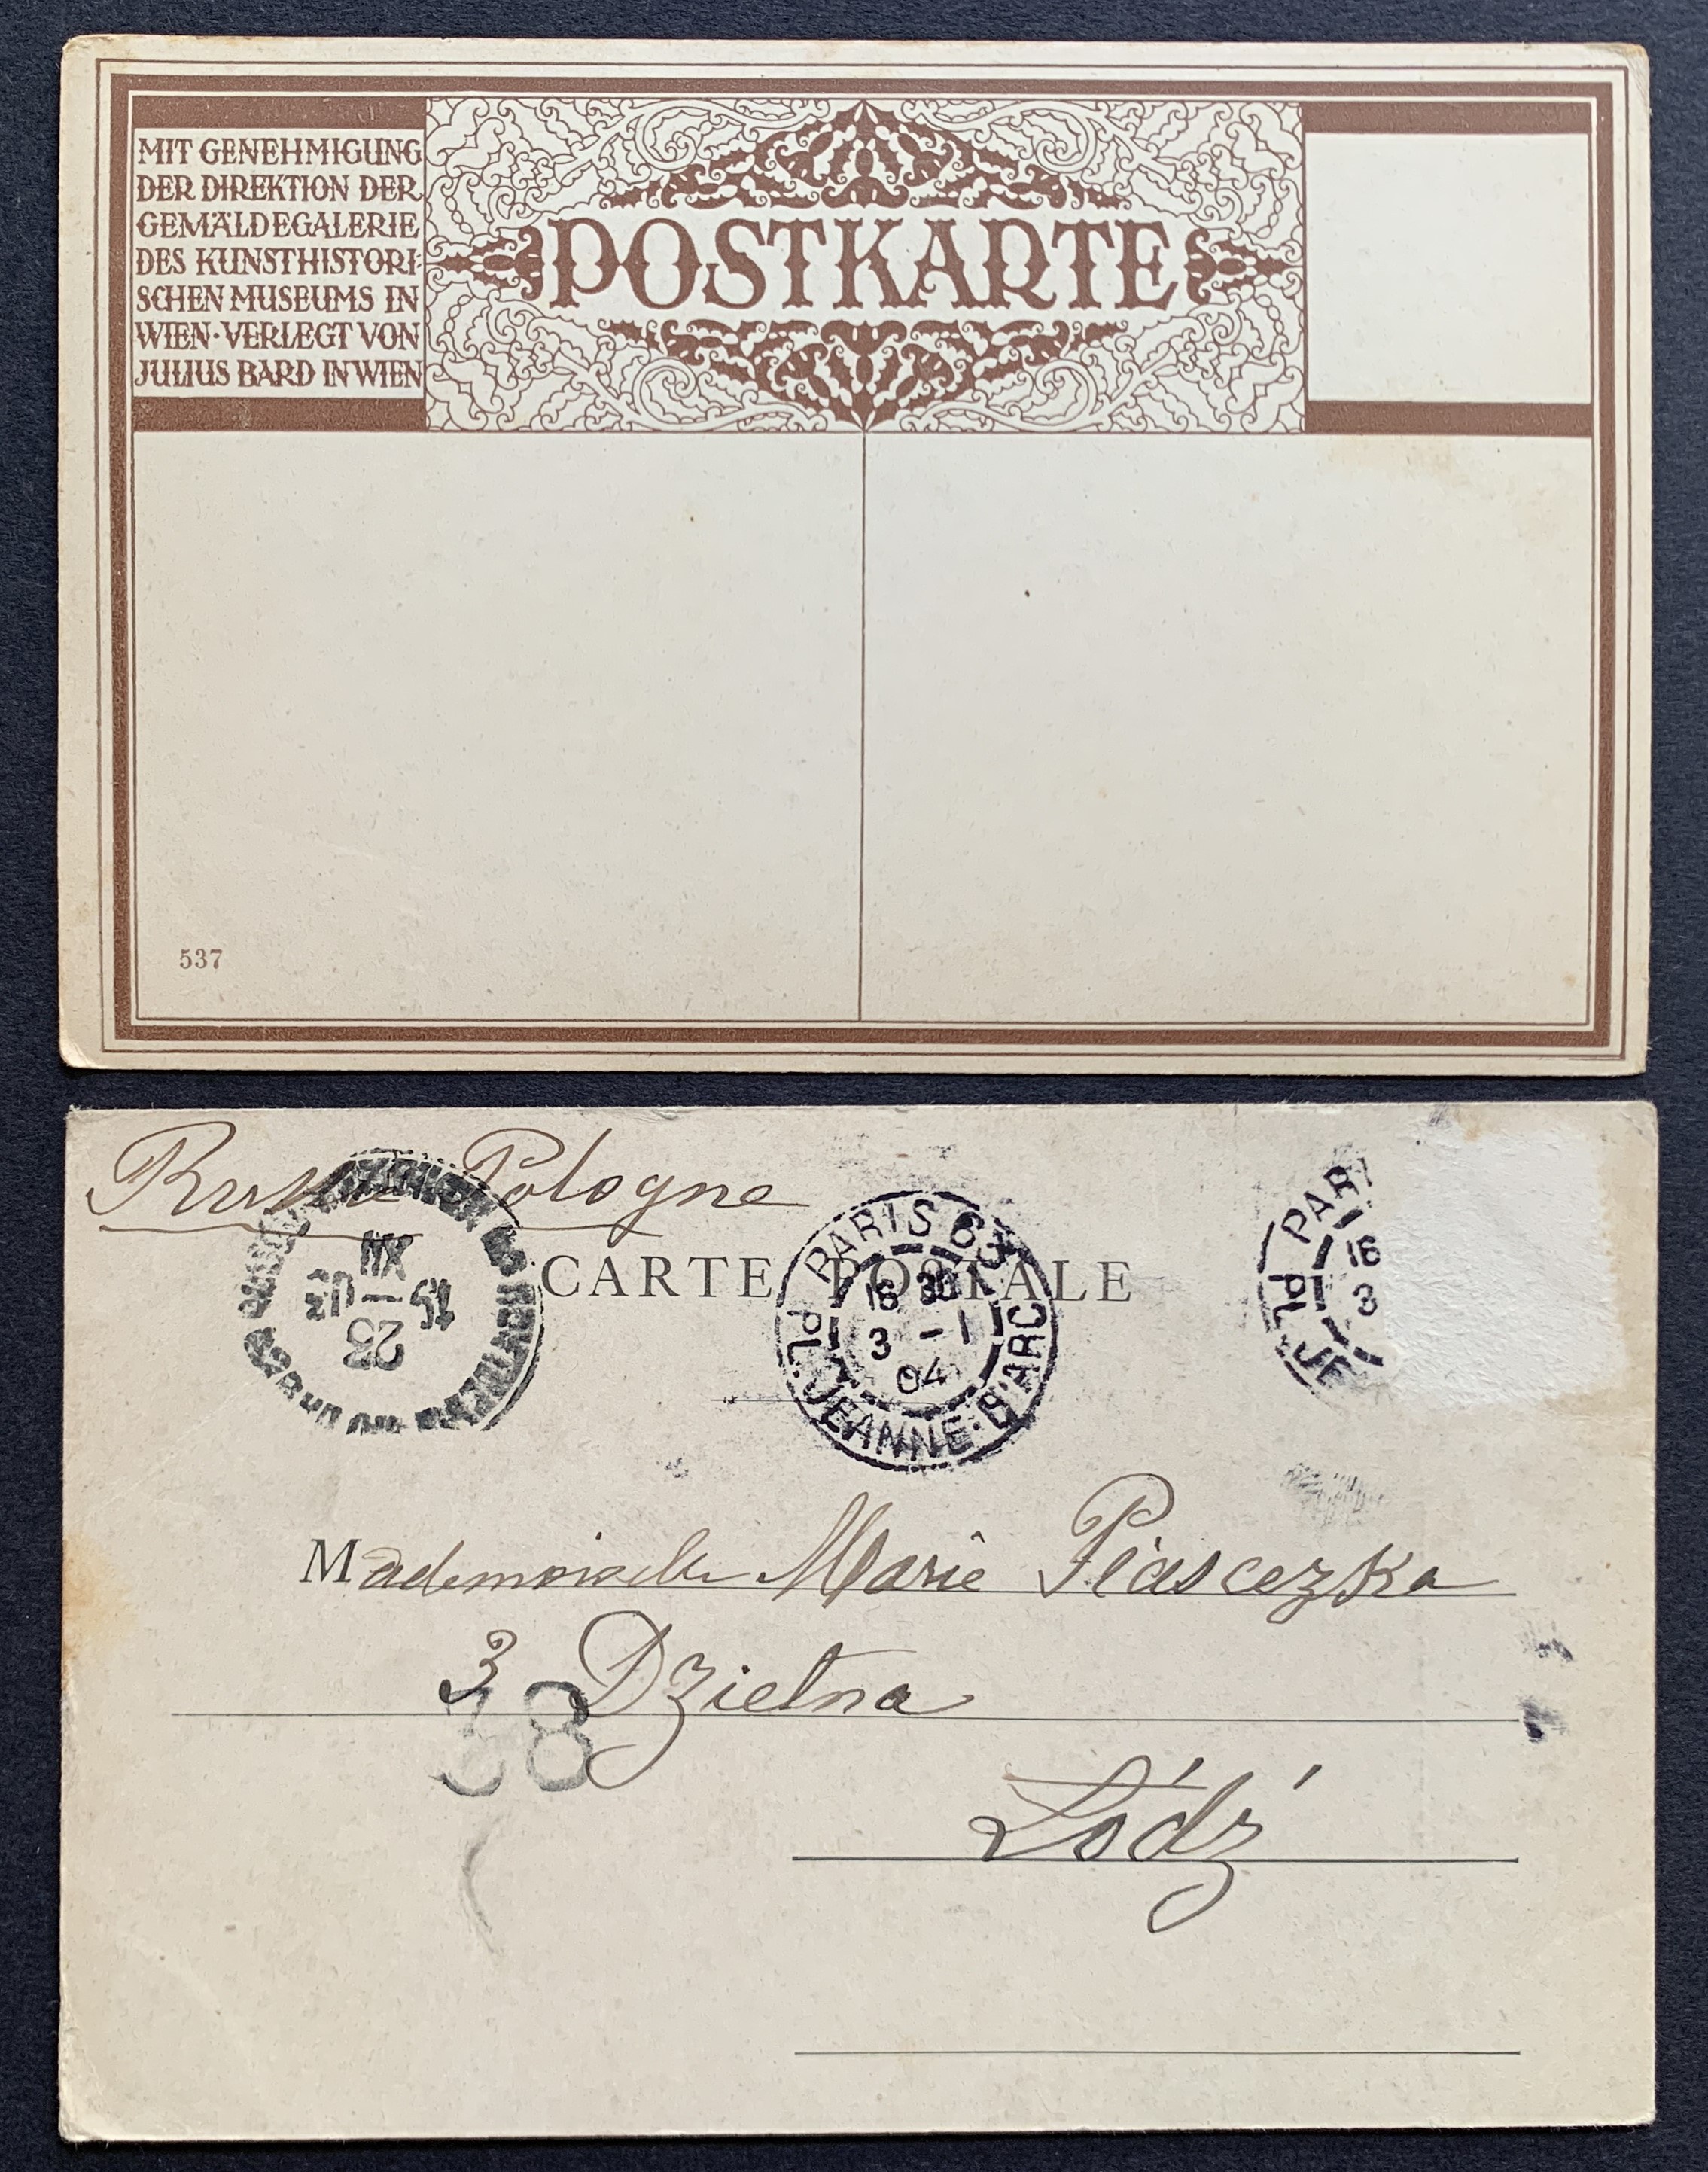 MIT GENEHMIGUNG
DER DIREKTION DER
GEMÄLDEGALERIE
DES KUNSTHISTORI-
SCHEN MUSEUMS IN
WIEN·VERLEGT VON
JULIUS BARD IN WIEN
POSTKARTE
537
Russie Pologne
CARTE POSTALE
XII
15 — 03
26
PARIS 63
16 30
3 - 1
04
PL. JEANNE-D'ARC
PARI
16
3
PL. JE
Mademoiselle Marie Piasceczka
3 Dzielna
38
Łódź